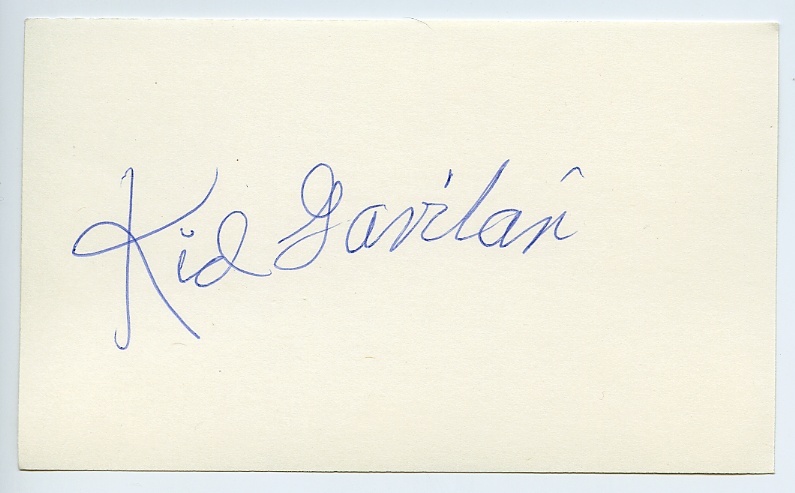 Kid Gavilan